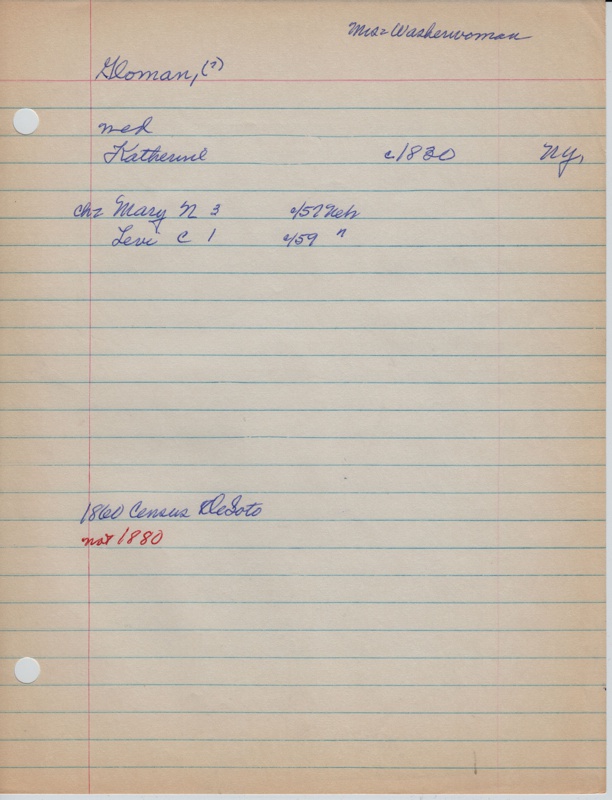 Mrs = Washerwoman
Gloman, (?)
med
Katherine c1830 NY,
ch= Mary N 3 c/57 Neb
Levi C 1 c/59 "
1860 Census DeSoto
not 1880